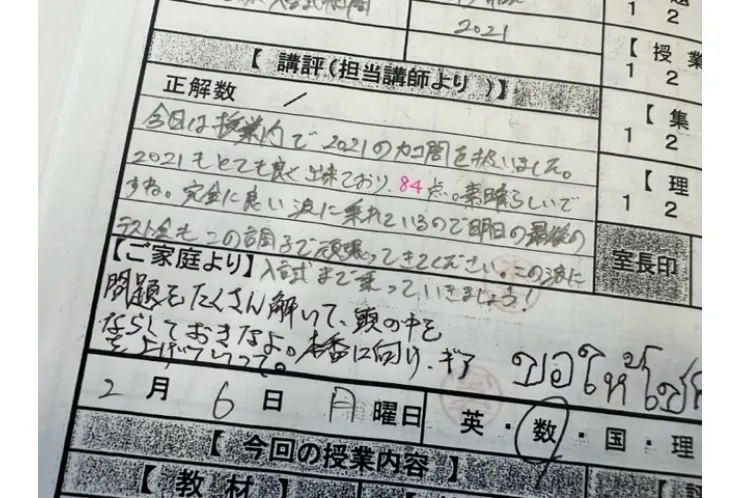 2021
1 2
【授業
1 2
【講評(担当講師より)】
正解数 /
【集
1 2
今日は授業内で2021のカコ問を扱いました。
2021もとても良く出来ており、84点。素晴らしいで
すね。完全に良い波に乗れているので明日の最後の
テスト会もこの調子で頑張ってきてください。この波に
入試まで乗っていきましょう!
【理
1 2
室長印
【ご家庭より】
問題をたくさん解いて、頭の中を
ならしておきなよ。本番に向け、ギア
を上げていって。
ขอให้โชค
2月6日月曜日 英・数・国・理
【今回の授業内容】
【教材】